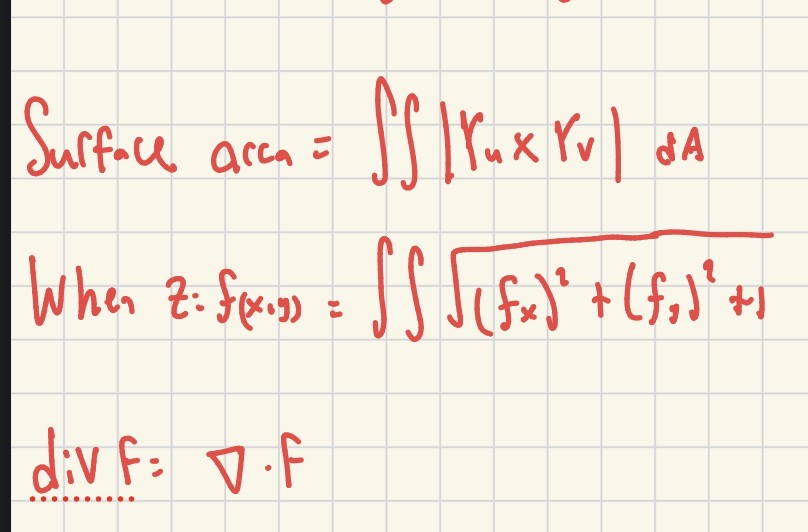 Surface area = ∬ |r_u × r_v| dA
When z = f(x,y) = ∬ √((f_x)² + (f_y)² + 1
div F = ∇ · F